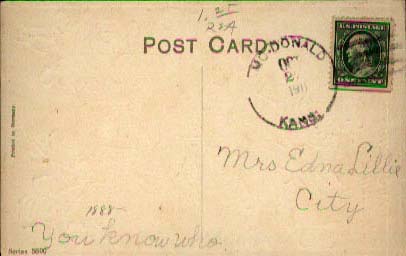 1.25
22A
POST CARD.
MC DONALD
OCT
2
191
KANS.
U.S. POSTAGE
ONE CENT
Printed in Germany
Mrs Edna Lillie
City
1888
You know who
Series 5600